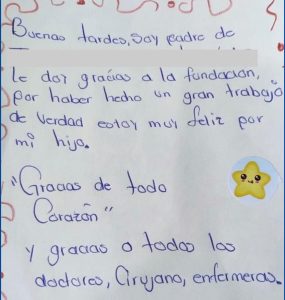 Buenas tardes, soy padre de
le doy gracias a la fundación,
por haber hecho un gran trabajo
de verdad estoy muy feliz por
mi hijo.
"Gracias de todo
Corazón"
y gracias a todos los
doctores, Cirujano, enfermeras.